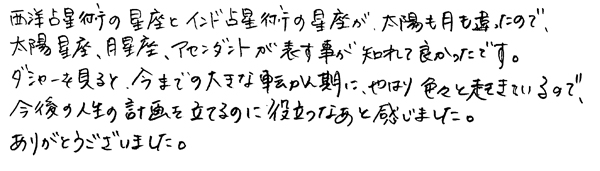 西洋占星術での星座とインド占星術での星座が、太陽も月も違ったので、
太陽星座、月星座、アセンダントが表す事が知れて良かったです。
ダシャーを見ると、今までの大きな転換期に、やはり色々と起きているので、
今後の人生の計画を立てるのに役立つなあと感じました。
ありがとうございました。